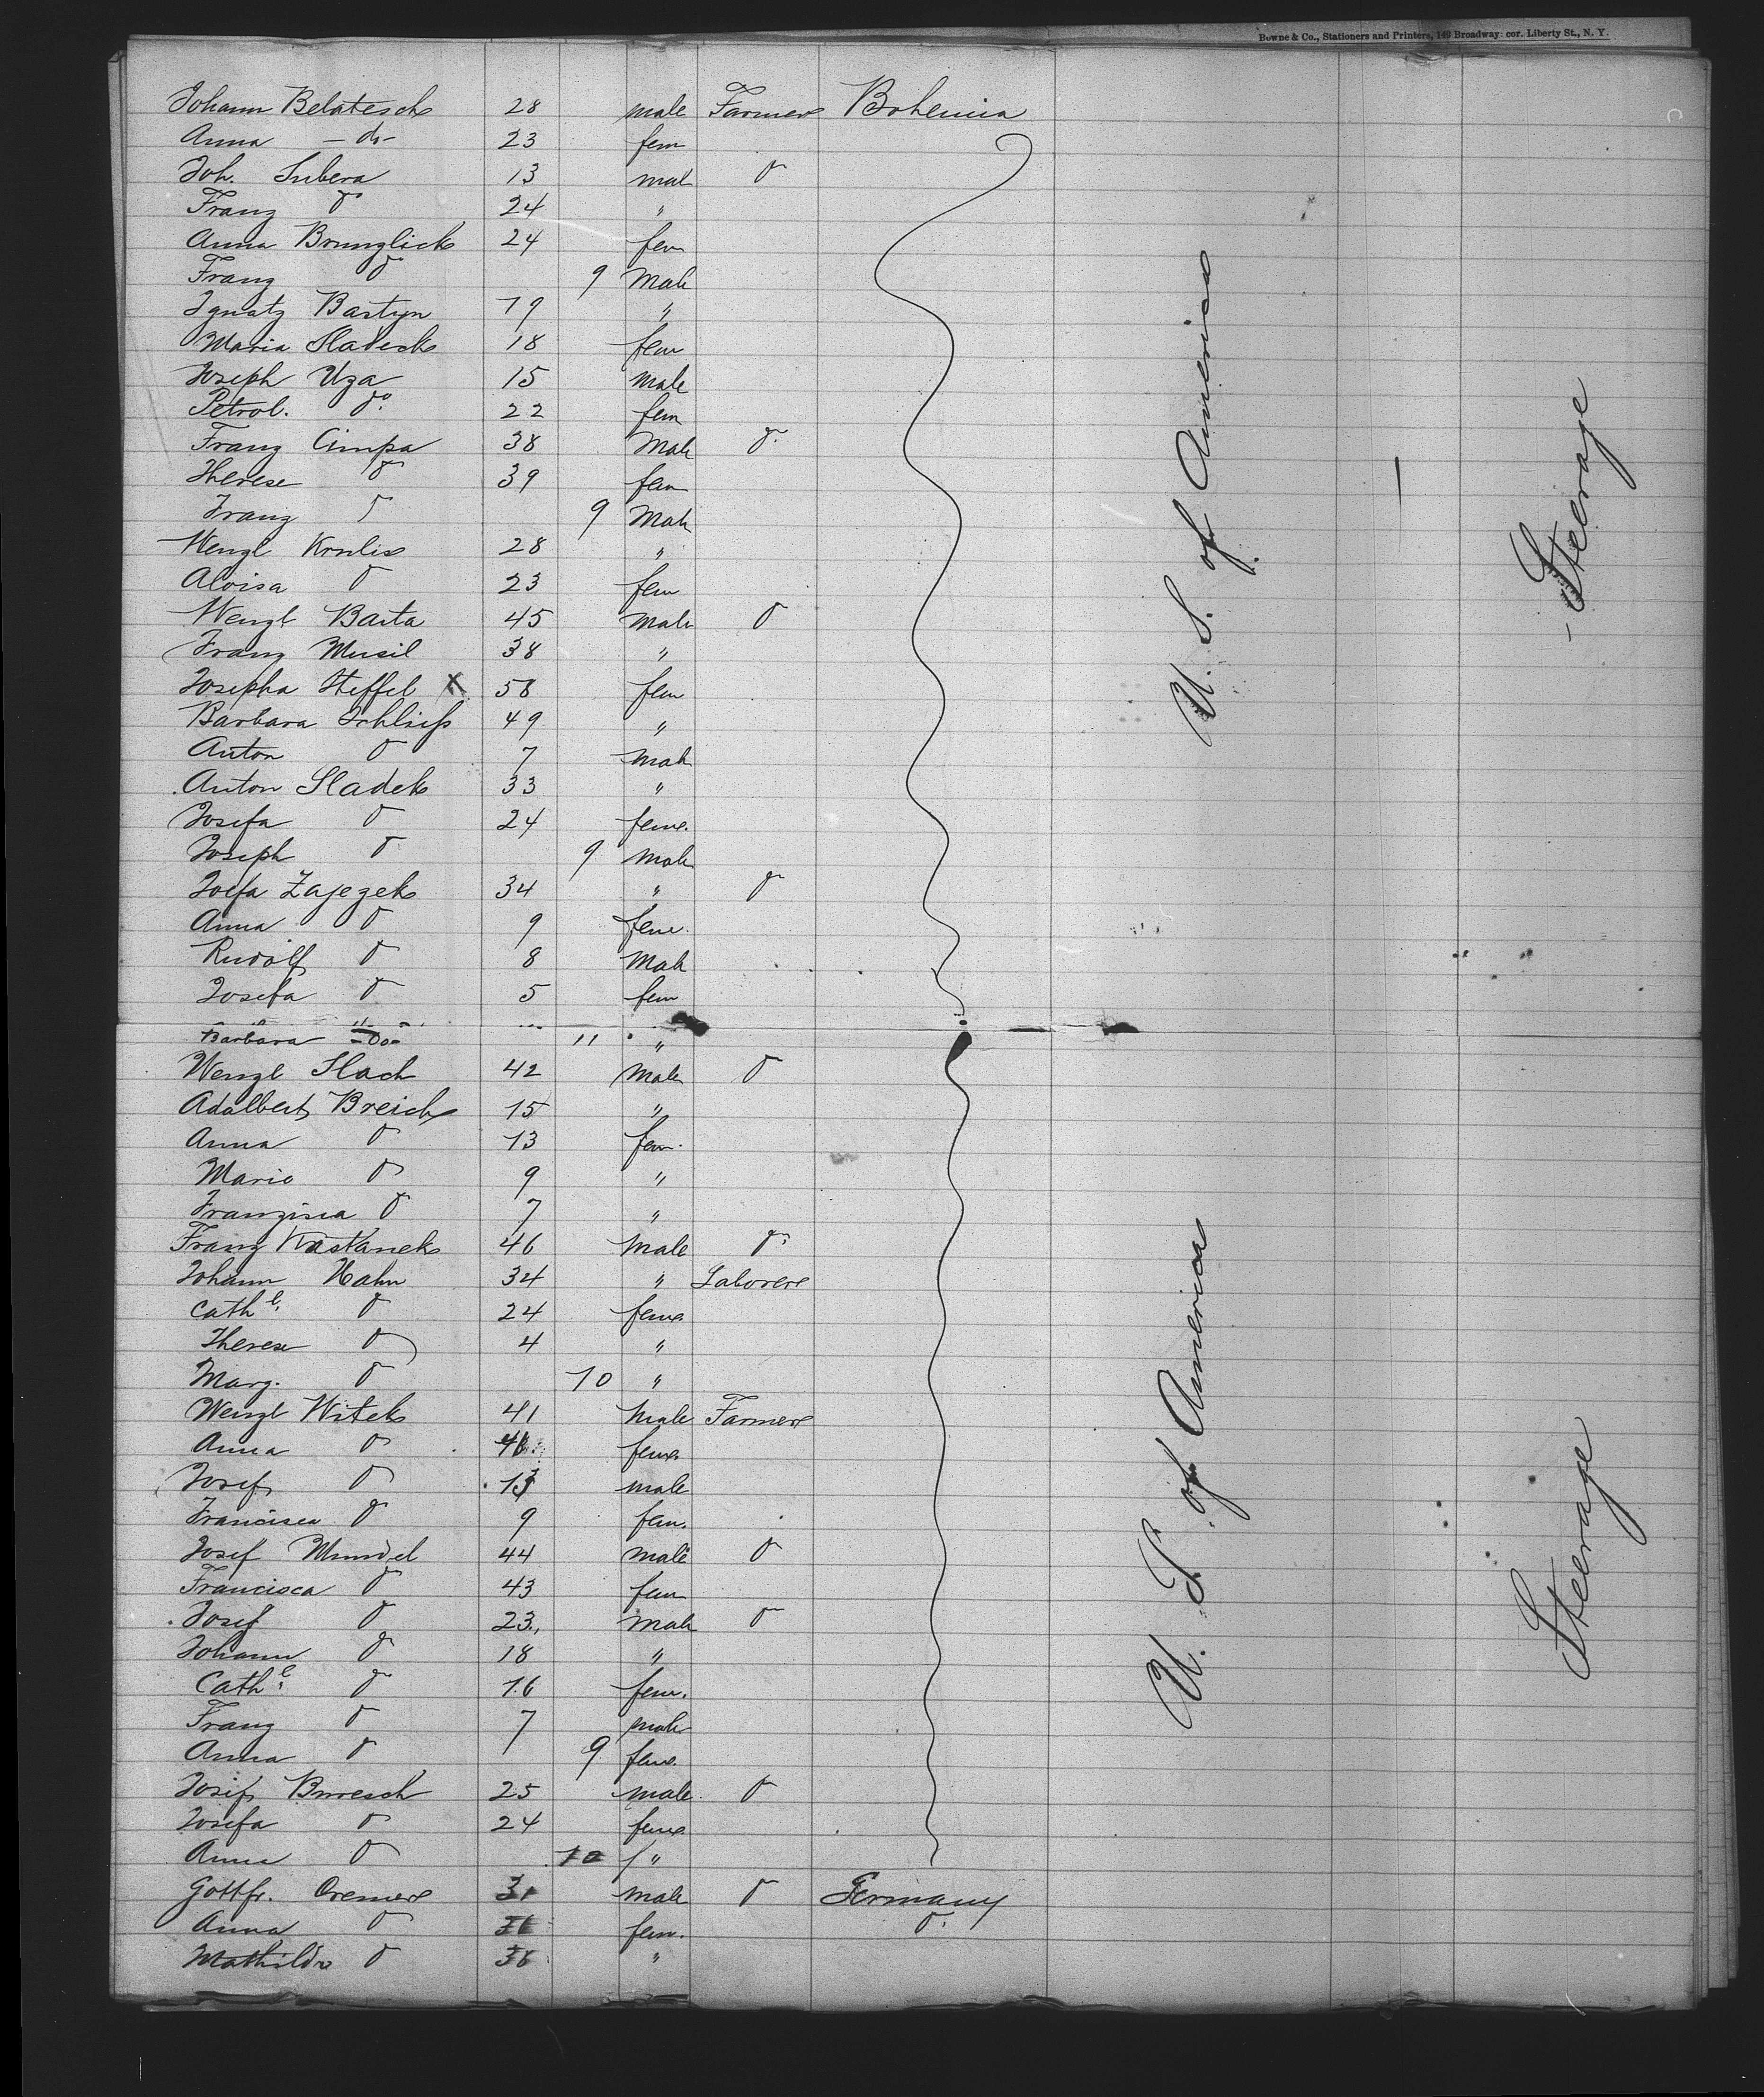 Bowne & Co., Stationers and Printers, 149 Broadway: cor. Liberty St., N. Y.
Johann Belatesch 28 male Farmer Bohemia
Anna - do - 23 fem
Joh. Subera 13 mal do
Franz do 24 "
Anna Brunzlick 24 fem
Franz do 9 Male
Ignatz Bastyn 19 "
Maria Sladeck 18 fem
Joseph Uza 15 male
Petrol. do. 22 fem
Franz Cimpa 38 Male do.
Therese do 39 fem
Franz do 9 Male
Wenzl Krulis 28 "
Aloisa do 23 fem
Wenzl Barta 45 Male do
Franz Musil 38 "
Josepha Steffel X 58 fem
Barbara Schliess 49 "
Anton do 7 Male
Anton Sladek 33 "
Josefa do 24 feme.
Joseph do 9 Male
Josefa Zajezek 34 " do
Anna do 9 feme.
Rudolf do 8 Male
Josefa do 5 fem
Barbara - Do - 11 "
Wenzl Slach 42 Male do
Adalbert Breich 15 "
Anna do 13 fem.
Marie do 9 "
Franzisca do 7 "
Franz Kastanek 46 Male do.
Johann Hahn 34 " Laborer
Cath e. do 24 feme
Therese do 4 "
Marg. do 10 "
Wenzl Witek 41 Male Farmer
Anna do feme.
Josef do 13 male
Francisca do 9 fem.
Josef Mundel 44 male do
Francisca do 43 fem
Josef do 23 Male do
Johann do 18 "
Cath e. do 16 fem.
Franz do 7 male
Anna do 9 feme.
Josif Buresch 25 male do
Josefa do 24 feme
Anna do 10 "
Gottfr. Cremer 31 male do Germany
Anna do fem. do.
Mathilde do 38 "
U. S. of America
U. S. of America
- Steerage
Steerage